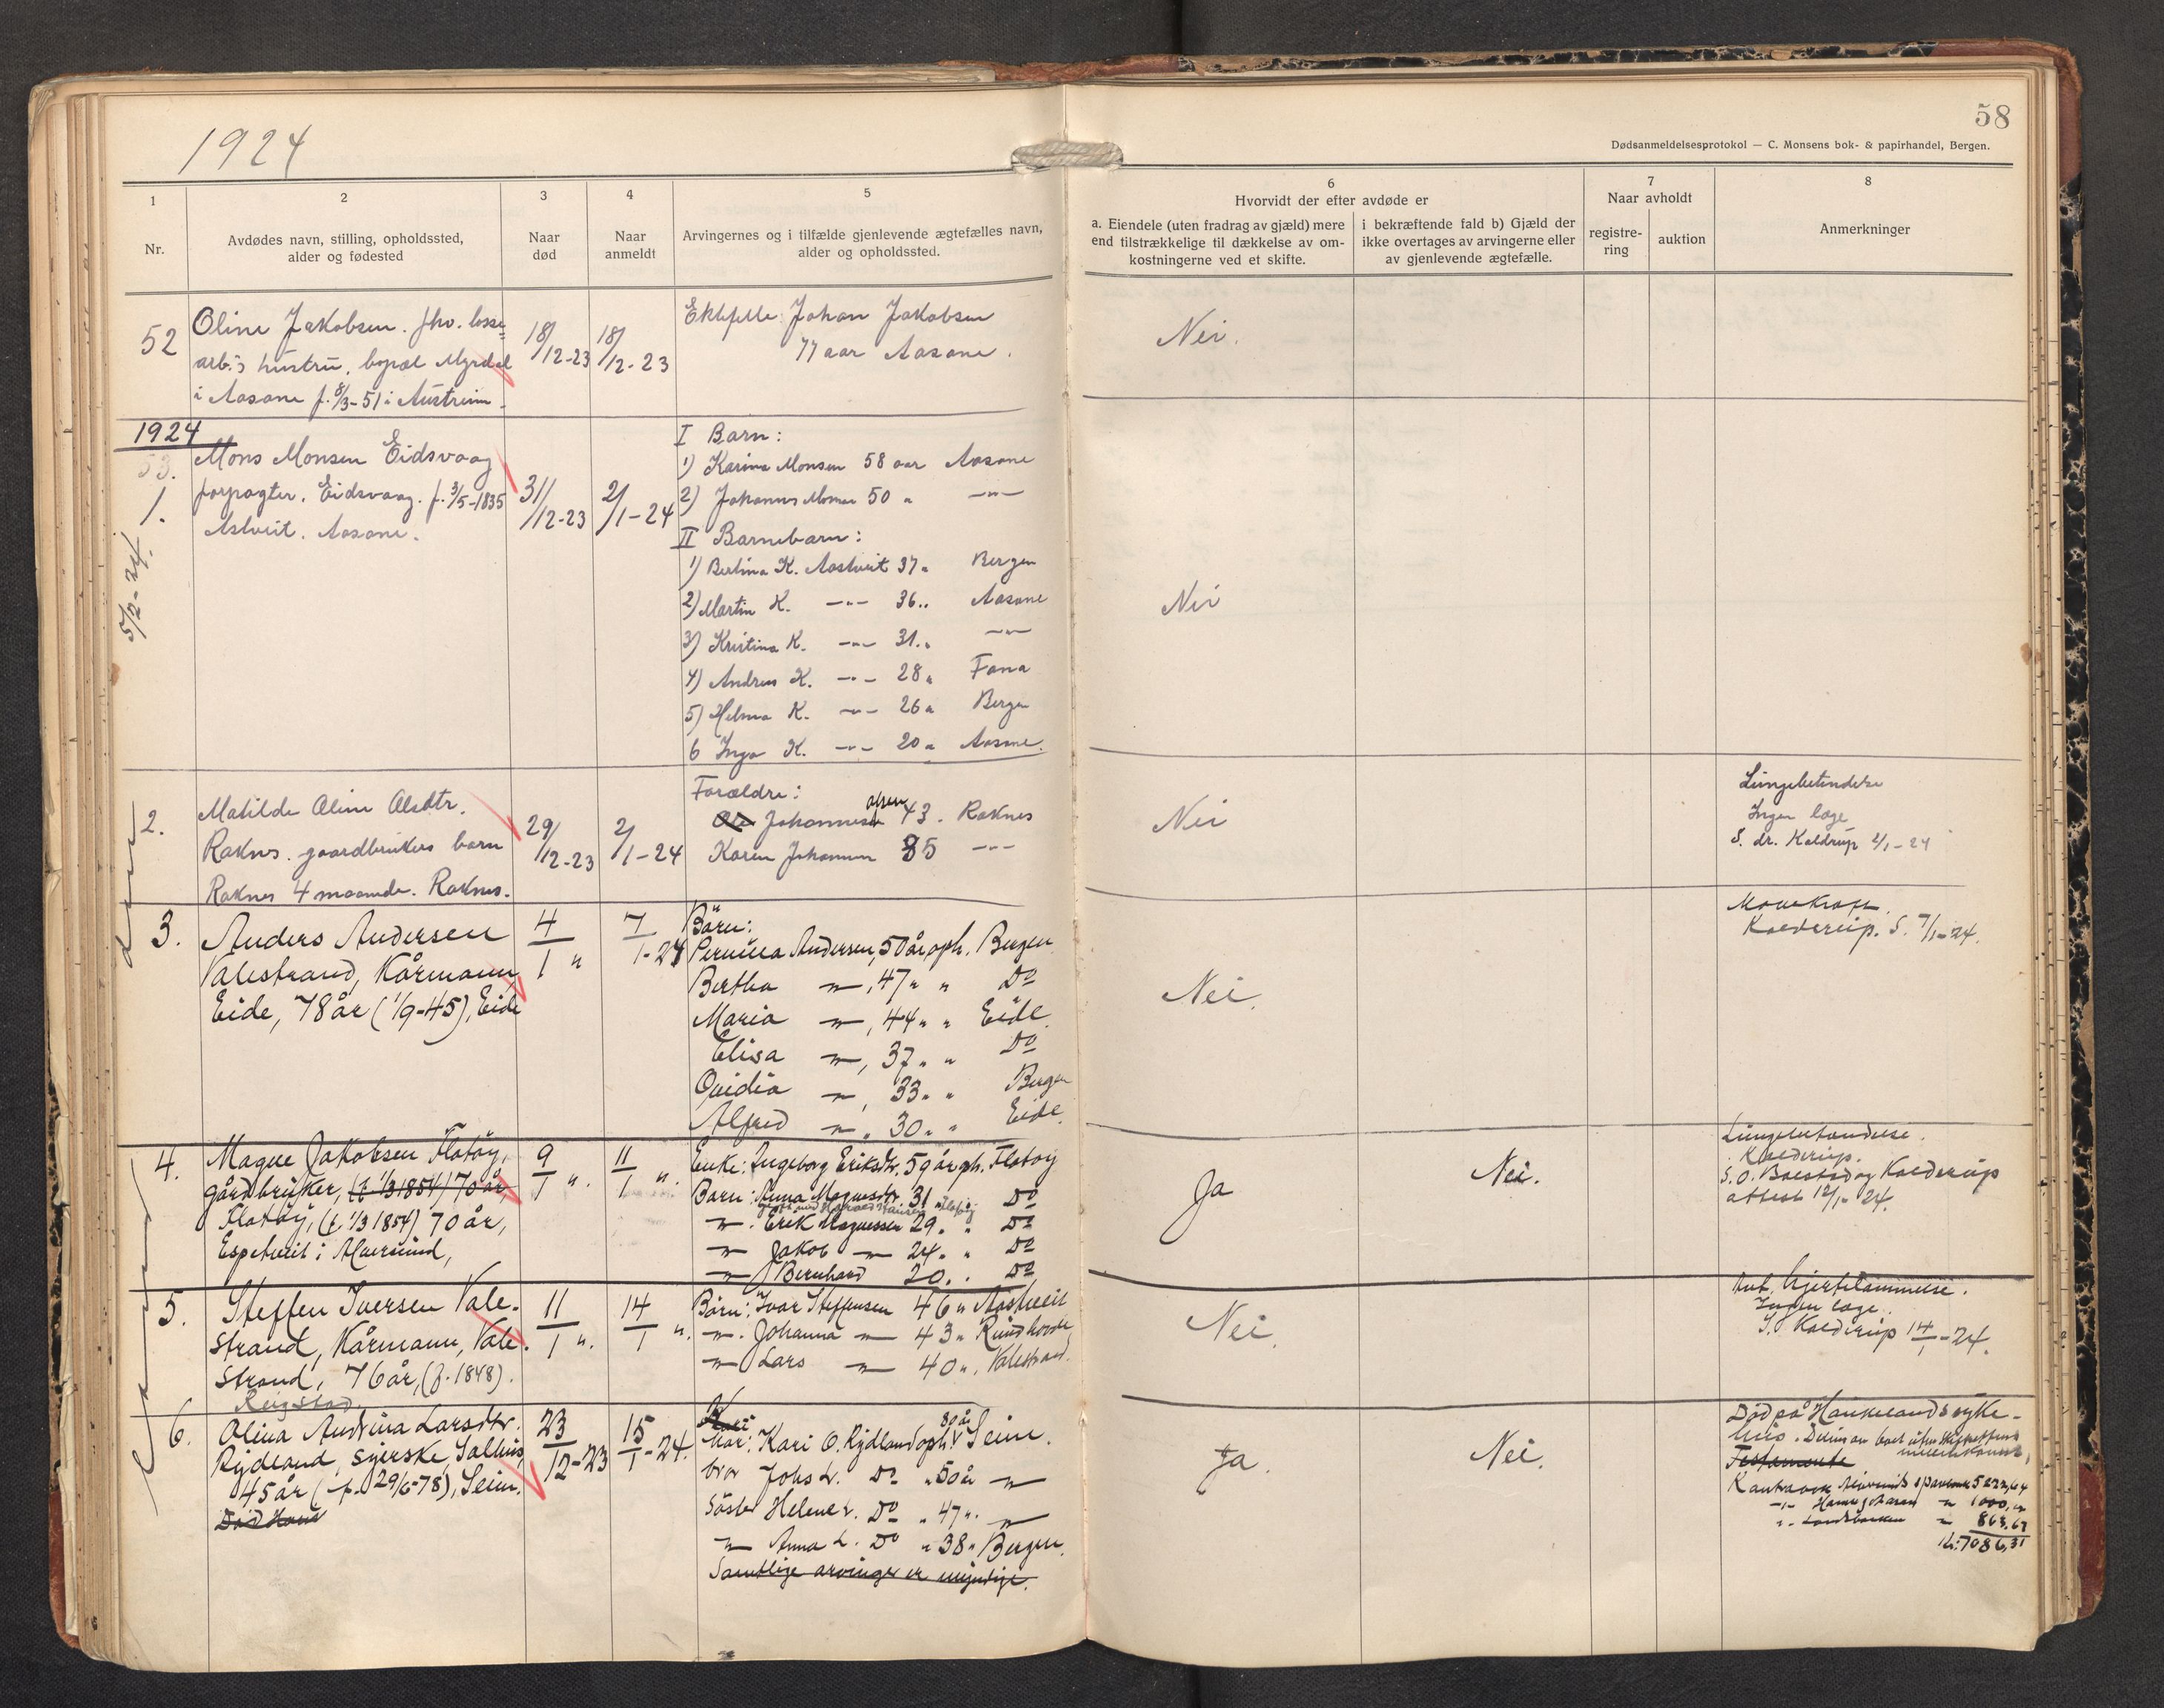 1924
58
Dødsanmeldelsesprotokol — C. Monsens bok- & papirhandel, Bergen.
1
2
3
4
5
6
7
8
Nr.
Avdødes navn, stilling, opholdssted,
alder og fødested
Naar
død
Naar
anmeldt
Arvingernes og i tilfælde gjenlevende ægtefælles navn,
alder og opholdssted.
Hvorvidt der efter avdøde er
a. Eiendele (uten fradrag av gjæld) mere
end tilstrækkelige til dækkelse av om-
kostningerne ved et skifte.
i bekræftende fald b) Gjæld der
ikke overtages av arvingerne eller
av gjenlevende ægtefælle.
Naar avholdt
registre-
ring
auktion
Anmerkninger
52
Oline Jakobsen. fhv. losse
arb.s hustru, bopæl Myrdal
i Aasane f. 8/3-51 i Austreim.
18/12-23
18/12-23
Ektefelle Johan Jakobsen
77 aar Aasane.
Nei.
1924
53.
1.
5/2-24.
Mons Monsen Eidsvaag
forpagter. Eidsvaag. f. 3/5-1835
Astveit. Aasane.
31/12-23
2/1-24
I Barn:
1) Karina Monsen 58 aar Aasane
2) Johannes Monsen 50 " —"—
II Barnebarn:
1) Bertina K. Aastveit 37 " Bergen
2) Martin K. —"— 36 " Aasane
3) Kristina K. —"— 31 " —"—
4) Andreas K. —"— 28 " Fana
5) Helma K. —"— 26 " Bergen
6 Inga K. —"— 20 " Aasane.
Nei
2.
Matilde Oline Olsdtr.
Raknes. gaardbrukers barn
Raknes 4 maaneder. Raknes.
29/12-23
2/1-24
Forældre:
Ole Johannes olsen 43. Raknes
Karen Johannesen 35 —"—
Nei
Lungebetendelse
Ingen læge
S. dr. Kaldrup 2/1-24
3.
Anders Andersen
Valestrand, Kårmann
Eide, 78 år (1/9-45), Eide
4/1 "
7/1-24
Börn:
Pernilla Andersen, 50 år, oph. Bergen
Bertha —"—, 47 " " Do
Maria —"—, 44 " " Eide.
Elisa —"—, 37 " " Do
Ovidia —"—, 33 " " Bergen
Alfred —"— " 30 " " Eide.
Nei.
Kaldrup. S. 7/1-24.
4.
Magne Jakobsen Flatöy,
gårdbruker, (f. 1/3 1854) 70 år,
Flatöy, (f. 1/3 1854) 70 år,
Espetveit i Alversund,
9/1 ".
11/1 ".
Enke: Ingeborg Eriksdtr. 59 år oph. Flatöy
Barn: Anna Magnesdtr. 31 " Do
—"— Erik Magnessen 29 " " Do
—"— Jakob —"— 24 " " Do
—"— Bernhard 20 " " Do
Ja
Nei.
Lungebetændelse.
Kaldrup.
attest 12/1-24.
5.
Steffen Iversen Vale-
strand, Kårmann, Vale-
strand, 76 år, (f. 1848).
Reigstad.
11/1 ".
14/1 ".
Börn: Ivar Steffensen 46 " Aastveit
—"— Johanna —"— 43 " Rundhovde
—"— Lars —"— 40 ", Valestrand.
Nei.
Ant. hjertelammelse.
Ingen læge.
S. Kaldrup 14/1-24.
6.
Olina Andrina Larsdtr.
Rydland, syerske, Salhus,
45 år (f. 29/6-78), Seim.
23/12-23
15/1-24.
Kari
Mor: Kari O. Rydland oph. 80 år Seim.
bror Johs L. Do " 50 år —"—
Söster Helene L. Do " 47 ". —"—
—"— Anna L. Do " 38 " Bergen.
Samtlige arvinger er myndige.
Ja.
Nei.
Död på Haukelands syke-
hus.
Testamente
5222,64
1000,00
Landsbanken " 863,67
kr. 7086,31